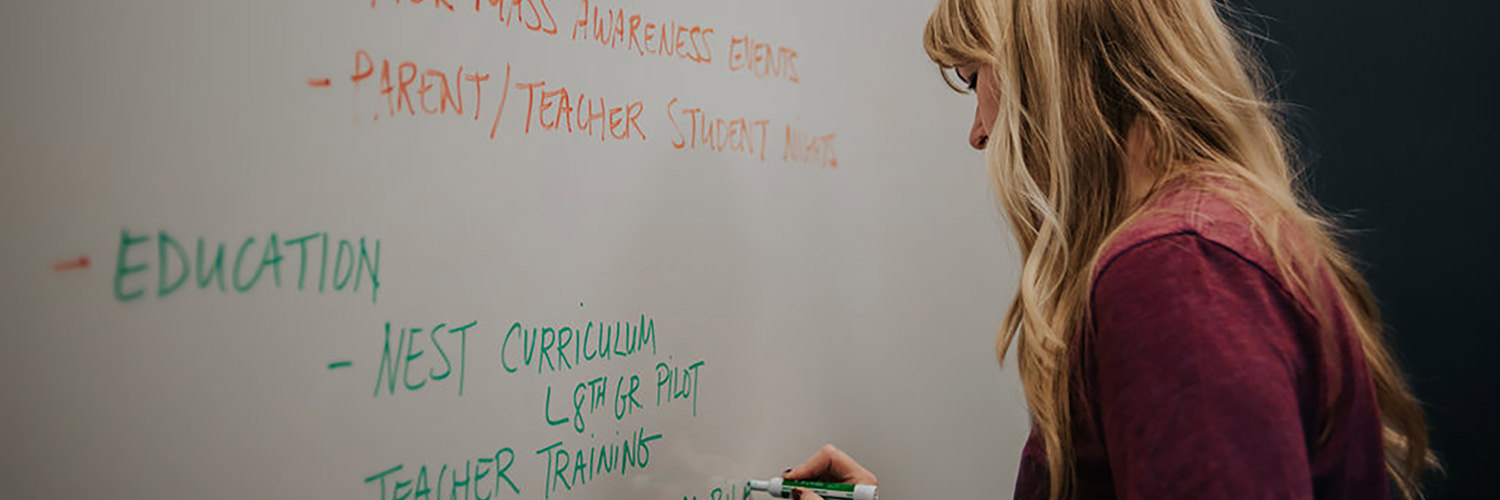 MASS AWARENESS EVENTS
- PARENT/TEACHER STUDENT NIGHTS
- EDUCATION
- NEST CURRICULUM
L 8TH GR. PILOT
TEACHER TRAINING